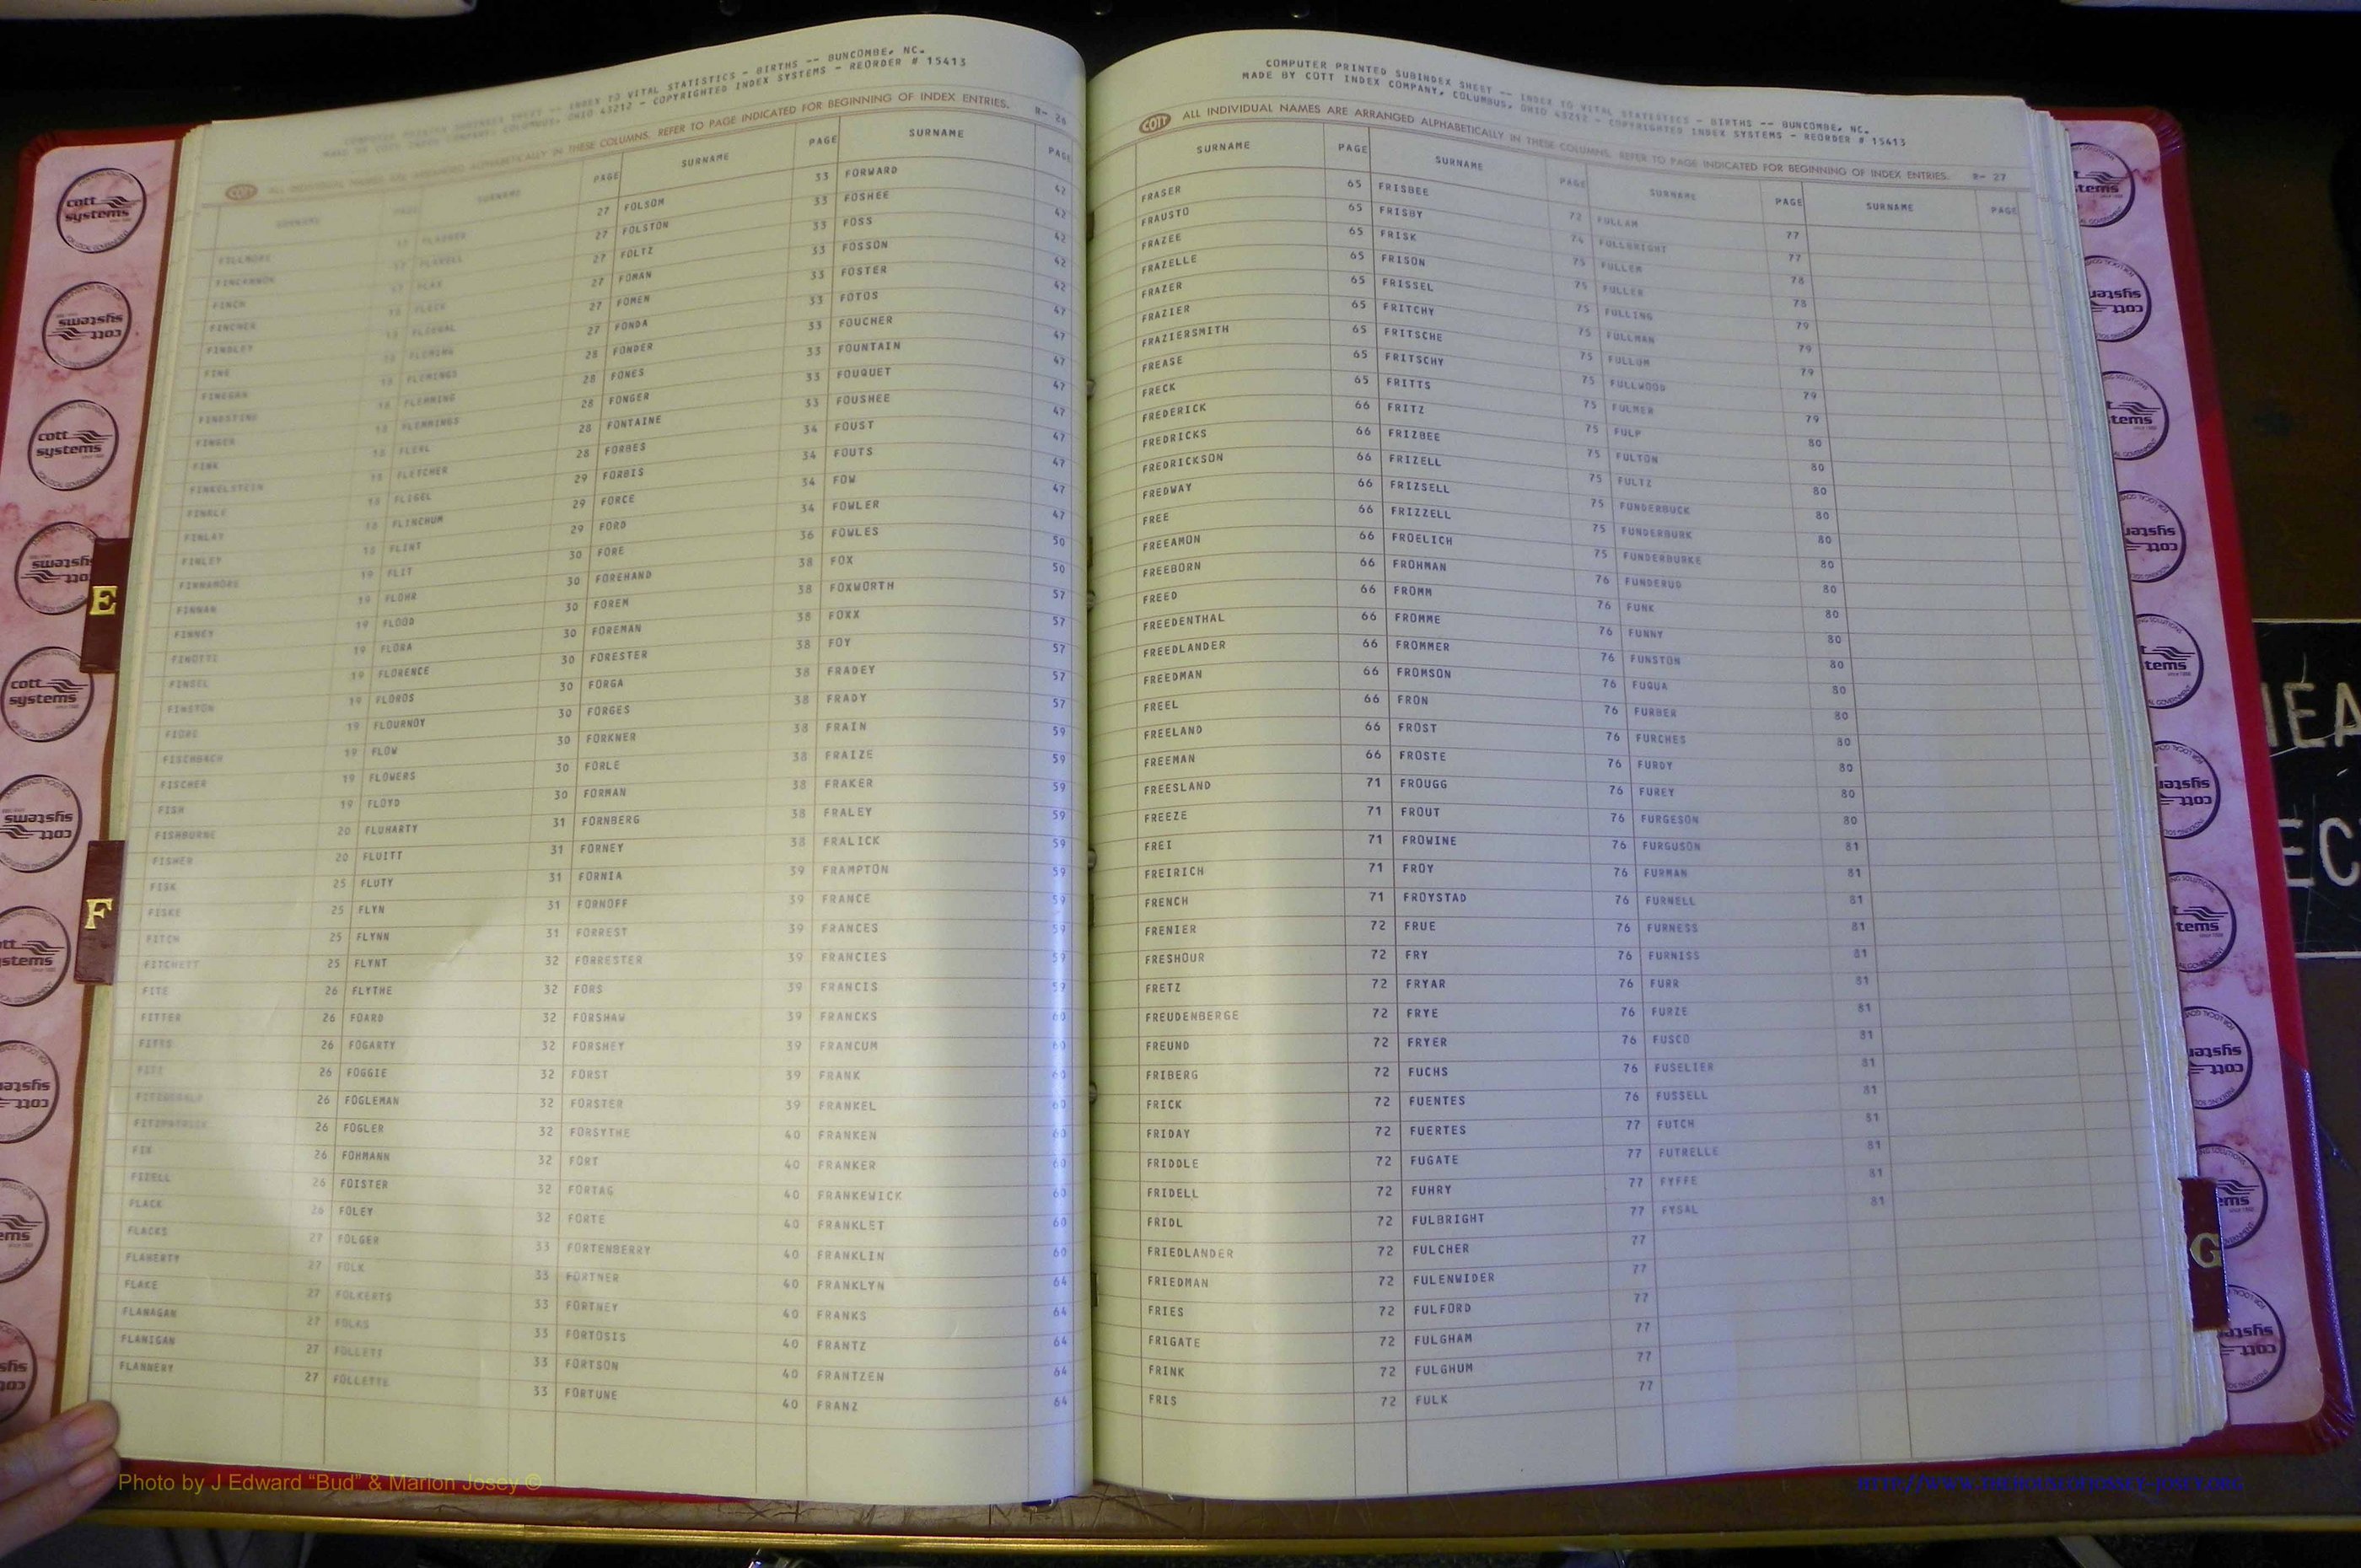 COMPUTER PRINTED SUBINDEX SHEET -- INDEX TO VITAL STATISTICS - BIRTHS -- BUNCOMBE, NC.
MADE BY COTT INDEX COMPANY, COLUMBUS, OHIO 43212 - COPYRIGHTED INDEX SYSTEMS - REORDER # 15413
COTT ALL INDIVIDUAL NAMES ARE ARRANGED ALPHABETICALLY IN THESE COLUMNS. REFER TO PAGE INDICATED FOR BEGINNING OF INDEX ENTRIES. R- 26
SURNAME PAGE
FILLMORE 17
FINCANNON 17
FINCH 17
FINCHER 18
FINDLEY 18
FINE 18
FINEGAN 18
FINESTINE 18
FINGER 18
FINK 18
FINKELSTEIN 18
FINKLE 18
FINLAY 18
FINLEY 18
FINNAMORE 19
FINNAN 19
FINNEY 19
FINOTTI 19
FINSEL 19
FINSTON 19
FIORE 19
FISCHBACH 19
FISCHER 19
FISH 19
FISHBURNE 20
FISHER 20
FISK 25
FISKE 25
FITCH 25
FITCHETT 25
FITE 26
FITTER 26
FITTS 26
FITZ 26
FITZGERALD 26
FITZPATRICK 26
FIX 26
FIZELL 26
FLACK 26
FLACKS 27
FLAHERTY 27
FLAKE 27
FLANAGAN 27
FLANIGAN 27
FLANNERY 27
SURNAME PAGE
27
FLAVELL 27
FLAX 27
FLECK 27
27
FLEMING 27
FLEMINGS 28
FLEMMING 28
FLEMMINGS 28
FLERL 28
FLETCHER 28
FLIGEL 29
FLINCHUM 29
FLINT 29
FLIT 30
FLOHR 30
FLOOD 30
FLORA 30
FLORENCE 30
FLOROS 30
FLOURNOY 30
FLOW 30
FLOWERS 30
FLOYD 30
FLUHARTY 31
FLUITT 31
FLUTY 31
FLYN 31
FLYNN 31
FLYNT 32
FLYTHE 32
FOARD 32
FOGARTY 32
FOGGIE 32
FOGLEMAN 32
FOGLER 32
FOHMANN 32
FOISTER 32
FOLEY 32
FOLGER 33
FOLK 33
FOLKERTS 33
FOLKS 33
FOLLETT 33
FOLLETTE 33
SURNAME PAGE
FOLSOM 33
FOLSTON 33
FOLTZ 33
FOMAN 33
FOMEN 33
FONDA 33
FONDER 33
FONES 33
FONGER 33
FONTAINE 33
FORBES 34
FORBIS 34
FORCE 34
FORD 34
FORE 36
FOREHAND 38
FOREM 38
FOREMAN 38
FORESTER 38
FORGA 38
FORGES 38
FORKNER 38
FORLE 38
FORMAN 38
FORNBERG 38
FORNEY 38
FORNIA 39
FORNOFF 39
FORREST 39
FORRESTER 39
FORS 39
FORSHAW 39
FORSHEY 39
FORST 39
FORSTER 39
FORSYTHE 40
FORT 40
FORTAG 40
FORTE 40
FORTENBERRY 40
FORTNER 40
FORTNEY 40
FORTOSIS 40
FORTSON 40
FORTUNE 40
SURNAME PAGE
FORWARD 42
FOSHEE 42
FOSS 42
FOSSON 42
FOSTER 42
FOTOS 47
FOUCHER 47
FOUNTAIN 47
FOUQUET 47
FOUSHEE 47
FOUST 47
FOUTS 47
FOW 47
FOWLER 47
FOWLES 50
FOX 50
FOXWORTH 57
FOXX 57
FOY 57
FRADEY 57
FRADY 57
FRAIN 59
FRAIZE 59
FRAKER 59
FRALEY 59
FRALICK 59
FRAMPTON 59
FRANCE 59
FRANCES 59
FRANCIES 59
FRANCIS 59
FRANCKS 60
FRANCUM 60
FRANK 60
FRANKEL 60
FRANKEN 60
FRANKER 60
FRANKEWICK 60
FRANKLET 60
FRANKLIN 60
FRANKLYN 64
FRANKS 64
FRANTZ 64
FRANTZEN 64
FRANZ 64
COMPUTER PRINTED SUBINDEX SHEET -- INDEX TO VITAL STATISTICS - BIRTHS -- BUNCOMBE, NC.
MADE BY COTT INDEX COMPANY, COLUMBUS, OHIO 43212 - COPYRIGHTED INDEX SYSTEMS - REORDER # 15413
COTT ALL INDIVIDUAL NAMES ARE ARRANGED ALPHABETICALLY IN THESE COLUMNS. REFER TO PAGE INDICATED FOR BEGINNING OF INDEX ENTRIES. R- 27
SURNAME PAGE
FRASER 65
FRAUSTO 65
FRAZEE 65
FRAZELLE 65
FRAZER 65
FRAZIER 65
FRAZIERSMITH 65
FREASE 65
FRECK 65
FREDERICK 66
FREDRICKS 66
FREDRICKSON 66
FREDWAY 66
FREE 66
FREEAMON 66
FREEBORN 66
FREED 66
FREEDENTHAL 66
FREEDLANDER 66
FREEDMAN 66
FREEL 66
FREELAND 66
FREEMAN 66
FREESLAND 71
FREEZE 71
FREI 71
FREIRICH 71
FRENCH 71
FRENIER 72
FRESHOUR 72
FRETZ 72
FREUDENBERGE 72
FREUND 72
FRIBERG 72
FRICK 72
FRIDAY 72
FRIDDLE 72
FRIDELL 72
FRIDL 72
FRIEDLANDER 72
FRIEDMAN 72
FRIES 72
FRIGATE 72
FRINK 72
FRIS 72
SURNAME PAGE
FRISBEE 72
FRISBY 74
FRISK 75
FRISON 75
FRISSEL 75
FRITCHY 75
FRITSCHE 75
FRITSCHY 75
FRITTS 75
FRITZ 75
FRIZBEE 75
FRIZELL 75
FRIZSELL 75
FRIZZELL 75
FROELICH 75
FROHMAN 76
FROMM 76
FROMME 76
FROMMER 76
FROMSON 76
FRON 76
FROST 76
FROSTE 76
FROUGG 76
FROUT 76
FROWINE 76
FROY 76
FROYSTAD 76
FRUE 76
FRY 76
FRYAR 76
FRYE 76
FRYER 76
FUCHS 76
FUENTES 76
FUERTES 77
FUGATE 77
FUHRY 77
FULBRIGHT 77
FULCHER 77
FULENWIDER 77
FULFORD 77
FULGHAM 77
FULGHUM 77
FULK 77
SURNAME PAGE
FULLAM 77
FULLBRIGHT 77
FULLEM 78
FULLER 78
FULLING 79
FULLMAN 79
FULLUM 79
FULLWOOD 79
FULMER 79
FULP 80
FULTON 80
FULTZ 80
FUNDERBUCK 80
FUNDERBURK 80
FUNDERBURKE 80
FUNDERUD 80
FUNK 80
FUNNY 80
FUNSTON 80
FUQUA 80
FURBER 80
FURCHES 80
FURDY 80
FUREY 80
FURGESON 80
FURGUSON 81
FURMAN 81
FURNELL 81
FURNESS 81
FURNISS 81
FURR 81
FURZE 81
FUSCO 81
FUSELIER 81
FUSSELL 81
FUTCH 81
FUTRELLE 81
FYFFE 81
FYSAL 81
SURNAME PAGE
E
F
G
cott systems
Photo by J Edward “Bud” & Marion Josey ©
HTTP://WWW.THEHOUSEOFJOSSEY-JOSEY.ORG